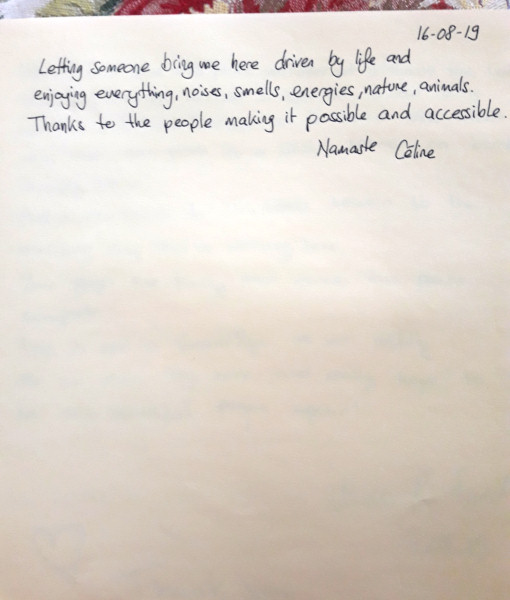 16-08-19
Letting someone bring me here driven by life and
enjoying everything, noises, smells, energies, nature, animals.
Thanks to the people making it possible and accessible.
Namaste Céline